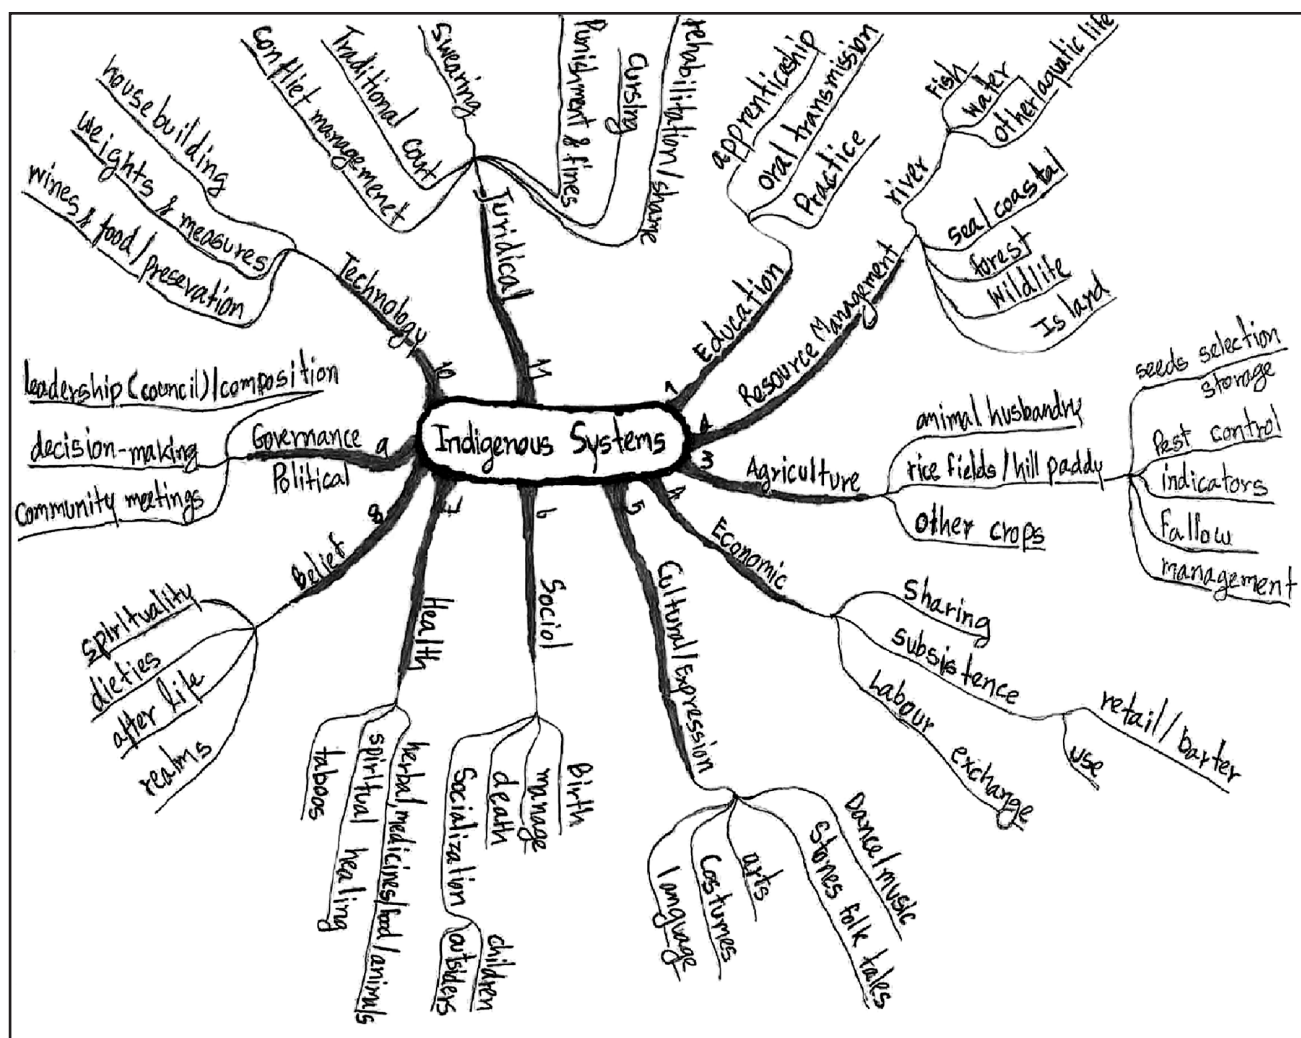 Indigenous Systems
1
Education
apprenticeship
oral transmission
Practice
Resource Management
river
Fish
water
other aquatic life
sea/coastal
forest
wildlife
Island
3
Agriculture
animal husbandry
rice fields/hill paddy
other crops
seeds selection
storage
Pest control
indicators
Fallow
management
4
Economic
Sharing
subsistence
retail/barter
use
Labour exchange
5
Cultural/Expression
Dance/music
Stories folk tales
arts
Costumes
language
6
Social
Birth
manage
death
Socialization
children
outsiders
Health
herbal/medicines/food/animals
spiritual healing
taboos
8
Belief
spirituality
dieties
after life
realms
9
Governance
Political
leadership (council)/composition
decision-making
community meetings
10
Technology
house building
weights & measures
wines & food/preservation
11
Juridical
conflict managemenet
Traditional court
swearing
Punishment & fines
Cursing
rehabilitation/shame